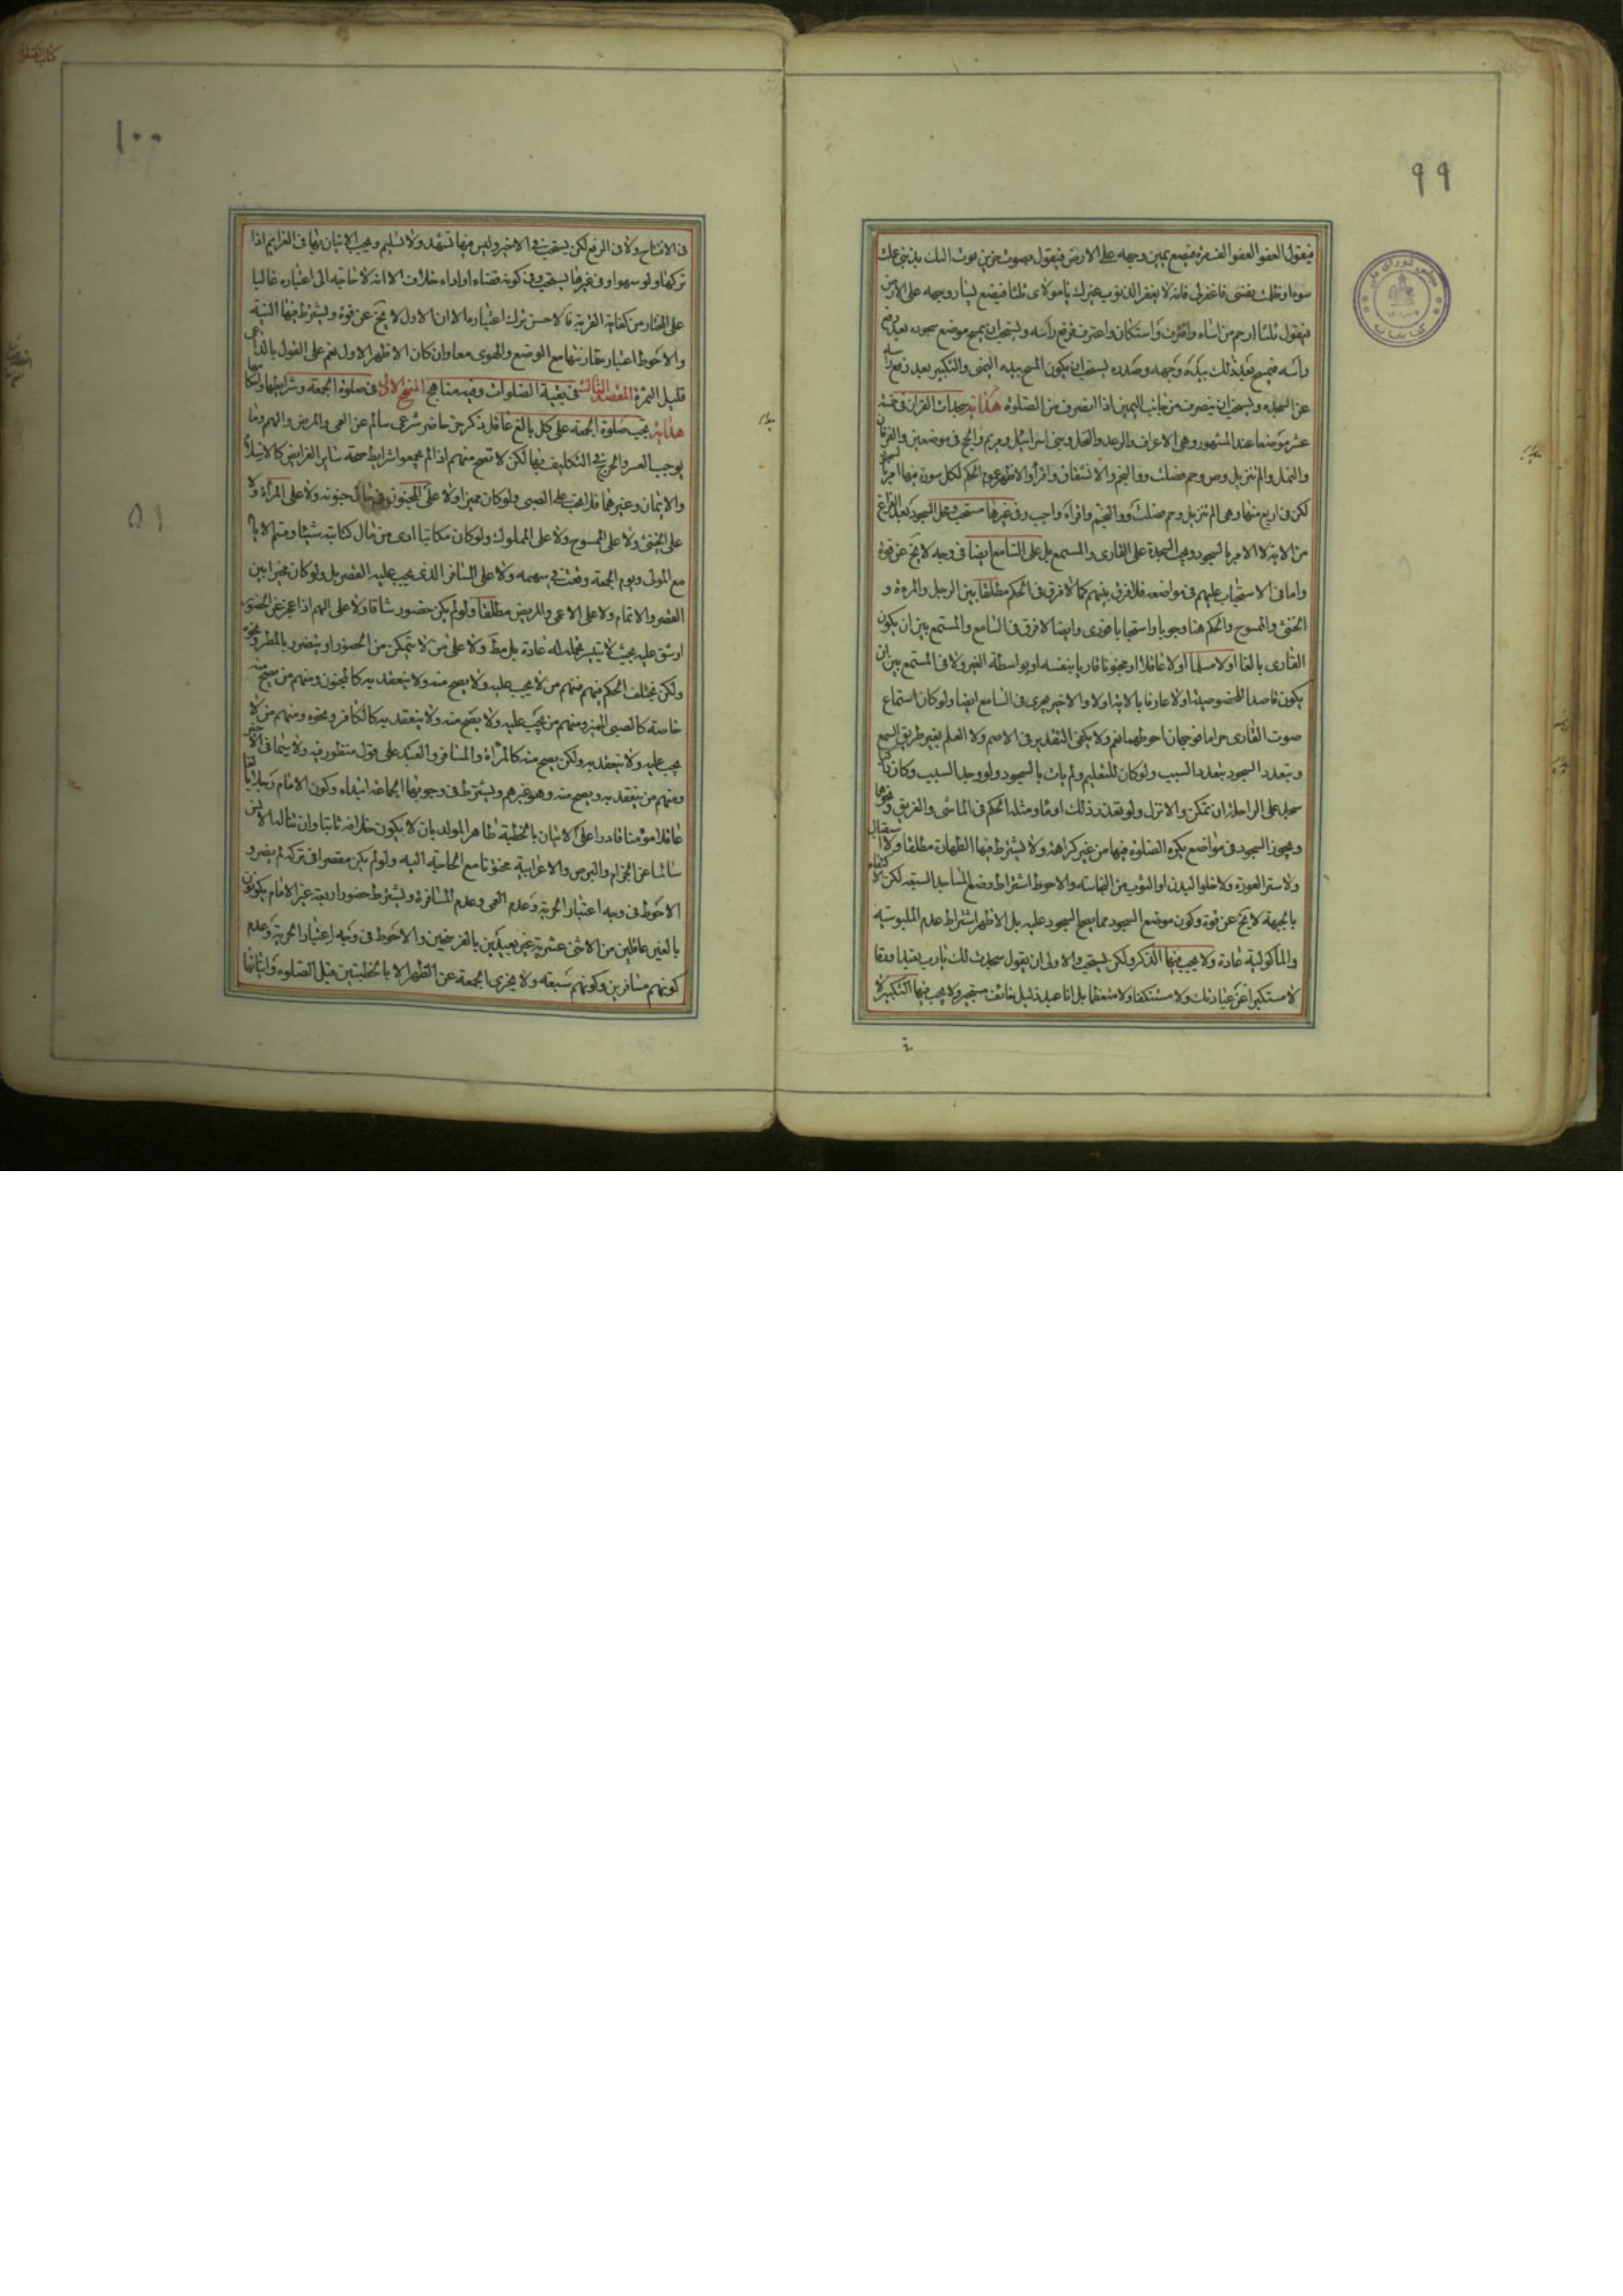 ٩٩
فيقول العفو العفو الف مرة فيضع يمين وجهه على الارض فيقول بصوت حزين بؤت اليك بذنبي عملت
سوءا وظلمت نفسى فاغفر لى فانه لا يغفر الذنوب غيرك يا مولاى ثلثا فيضع يسار وجهه على الارض
فيقول ثلثا ارحم من اساء واقترف واستكان واعترف فيرفع رأسه ويستحب ان يمسح موضع سجوده بعد رفع
رأسه فيمسح بعد ذلك بيده وجهه وصدره يستحب ان يكون المسح بيده اليمنى والتكبير بعد رفع رأسه
عن السجدة ويستحب ان ينصرف من جانب اليمين اذا انصرف من الصلوة هداية سجدات القران خمسة
عشر موضعا عند المشهور وهى الاعراف والرعد والنحل وبنى اسرائيل ومريم والحج فى موضعين والفرقان
والنمل والم تنزيل وص وحم فصلت والنجم والانشقاق واقرأ والاظهر عموم الحكم لكل سورة فيها امر بالسجود
لكن فى اربع منها وهى الم تنزيل وحم فصلت والنجم واقرأ واجب وفى غيرها مستحب ومحل السجود بعد الفراغ
من الاية لا الامر بالسجود ويجب السجدة على القارى والمستمع بل على السامع ايضا فى وجه لا يخ عن قوة
واما فى الاستحباب عليهم فى مواضعه فلا فرق بينهم كما لا فرق فى الحكم مطلقا بين الرجل والمرءة و
الخنثى والممسوح والحكم هنا وجوبا واستحبابا فورى وايضا لا فرق فى السامع والمستمع بين ان يكون
القارى بالغا اولا مسلما اولا عاقلا او مجنونا قاريا بنفسه او بواسطة الغير ولا فى المستمع بين ان
يكون قاصدا للخصوصية اولا عارفا بالاية اولا والاخير يجرى فى السامع ايضا ولو كان استماع
صوت القارى حراما فوجهان احوطهما نعم ولا يكفى التقدير فى الاصم ولا العلم بغير طريق السمع
ويتعدد السجود بتعدد السبب ولو كان للتعليم ولم يات بالسجود ولو وجد السبب وكان راكبا
سجد على الراحلة ان تمكن والا نزل ولو تعذر ذلك اومأ ومثله الحكم فى الماشى والغريق ونحوهما
ويجوز السجود فى مواضع يكره الصلوة فيها من غير كراهة ولا يشترط فيها الطهارة مطلقا ولا استقبال
ولا ستر العورة ولا خلو البدن او الثوب من النجاسة والاحوط اشتراط وضع المساجد السبعة لكن الاكتفاء
بالجبهة لا يخ عن قوة وكون موضع السجود مما يصح السجود عليه بل الاظهر اشتراط عدم الملبوسية
والمأكولية عادة ولا يجب فيها الذكر ولكن يستحب والاولى ان يقول سجدت لك يا رب تعبدا ورقا
لا مستكبرا عن عبادتك ولا مستنكفا ولا متعظما بل انا عبد ذليل خائف مستجير ولا يجب فيها التكبير لا
١٠٠
فى الافتتاح ولا فى الرفع لكن يستحب فى الاخير وليس فيها تشهد ولا تسليم ويجب الاتيان بها فى العزايم اذا
تركها ولو سهوا وفى غيرها يستحب وفى كونه قضاء او اداء خلاف الا انه لا حاجة الى اعتباره غالبا
على المختار من كفاية القربة فالاحسن ترك اعتبارهما الا ان الاول لا يخ عن قوة ويشترط فيها النية
والاحوط اعتبار مقارنتها مع الوضع والهوى معا وان كان الاظهر الاول نعم على القول بالداعى
قليل الثمرة المقصد الثالث فى بقية الصلوات وفيه مناهج المنهج الاول فى صلوة الجمعة وشرايطها
هداية يجب صلوة الجمعة على كل بالغ عاقل ذكر حر حاضر شرعى سالم عن العمى والمرض والهم وما
يوجب العسر والحرج فى التكليف بها لكن لا تصح منهم اذا لم يجمعوا شرايط صحة ساير الفرايض كالاسلام
والايمان وغيرها فلا تجب على الصبى ولو كان مميزا ولا على المجنون فى حال جنونه ولا على المرأة ولا
على الخنثى ولا على الممسوح ولا على المملوك ولو كان مكاتبا ادى من مال كتابته شيئا وقسم الايام
مع المولى ويوم الجمعة وقعت فى سهمه ولا على المسافر الذى يجب عليه القصر بل ولو كان مخيرا بين
القصر والاتمام ولا على الاعمى والمريض مطلقا ولو لم يكن حضور شاقا ولا على الهم اذا عجز عن الحضور
او شق عليه بحيث لا يتيسر تحمله له عادة بل مط ولا على من لا يتمكن من الحضور او يتضرر بالمطر ونحوه
ولكن يختلف الحكم فيهم فمنهم من لا يجب عليه ولا يصح منه ولا ينعقد به كالمجنون ومنهم من يصح منه
خاصة كالصبى المميز ومنهم من يجب عليه ولا يصح منه ولا ينعقد به كالكافر ونحوه ومنهم من لا
يجب عليه ولا ينعقد به ولكن يصح منه كالمرأة والمسافر والعبد على قول منظور فيه ولا سيما فى الاخير
ومنهم من ينعقد به ويصح منه وهو غيرهم ويشترط فى وجوبها الجماعة ابتداء وكون الامام رجلا بالغا
عاقلا مؤمنا قادرا على الاتيان بالخطبة طاهر المولد بان لا يكون خلافه ثابتا وان تناله الالسن
سالما عن الجذام والبرص والاعرابية مختونا مع الحاجة اليه ولو لم يكن مقصرا فى تركه لم يضر و
الاحوط فى وجه اعتبار الحرية وعدم العمى وعدم المسافرة ويشترط حضور اربعة غير الامام يكونون
بالغين عاقلين من الاثنى عشرية غير بعيدين بالفرسخين والاحوط فى وجه اعتبار الحرية وعدم
كونهم مسافرين وكونهم سبعة ولا يجزى الجمعة عن الظهر الا بالخطبتين قبل الصلوة واتيانها